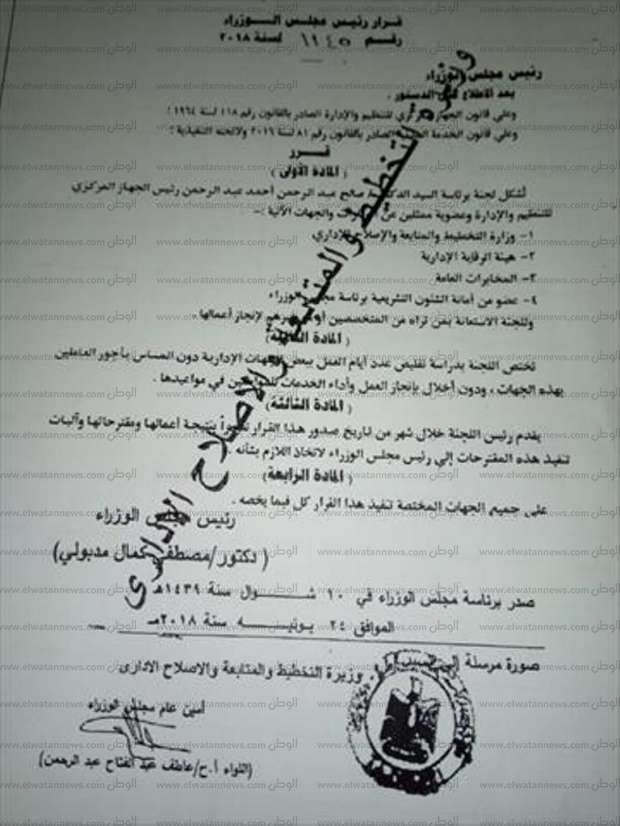 قرار رئيس مجلس الوزراء
رقم ١١٤٥ لسنة ٢٠١٨
رئيس مجلس الوزراء
بعد الاطلاع على الدستور ،
وعلى قانون الجهاز المركزي للتنظيم والإدارة الصادر بالقانون رقم ١١٨ لسنة ١٩٦٤ ؛
وعلى قانون الخدمة المدنية الصادر بالقانون رقم ٨١ لسنة ٢٠١٦ ولائحته التنفيذية ؛
قـــرر
(المادة الأولى)
تشكل لجنة برئاسة السيد الدكتور صالح عبد الرحمن أحمد عبد الرحمن رئيس الجهاز المركزي
للتنظيم والإدارة وعضوية ممثلين عن الوزارات والجهات الآتية :-
١- وزارة التخطيط والمتابعة والإصلاح الإداري
٢- هيئة الرقابة الإدارية
٣- المخابرات العامة
٤- عضو من أمانة الشئون التشريعية برئاسة مجلس الوزراء
وللجنة الاستعانة بمن تراه من المتخصصين أو غيرهم لإنجاز أعمالها.
(المادة الثانية)
تختص اللجنة بدراسة تقليص عدد أيام العمل ببعض الجهات الإدارية دون المساس بأجور العاملين
بهذه الجهات ، ودون أخلال بإنجاز العمل وأداء الخدمات للمواطنين في مواعيدها .
(المادة الثالثة)
يقدم رئيس اللجنة خلال شهر من تاريخ صدور هذا القرار تقريراً بنتيجة أعمالها ومقترحاتها وآليات
تنفيذ هذه المقترحات إلى رئيس مجلس الوزراء لاتخاذ اللازم بشأنه .
(المادة الرابعة)
على جميع الجهات المختصة تنفيذ هذا القرار كل فيما يخصه .
رئيس مجلس الوزراء
(دكتور/مصطفى كمال مدبولي)
صدر برئاسة مجلس الوزراء في ١٠ شــــوال سنة ١٤٣٩هـ
الموافق ٢٤ يونيــــه سنة ٢٠١٨مـ
صورة مرسلة إلى السيد وزيرة التخطيط والمتابعة والاصلاح الادارى
أمين عام مجلس الوزراء
(اللواء أ.ح/عاطف عبد الفتاح عبد الرحمن)
وزارة التخطيط والمتابعة والاصلاح الادارى
الوطن www.elwatannews.com